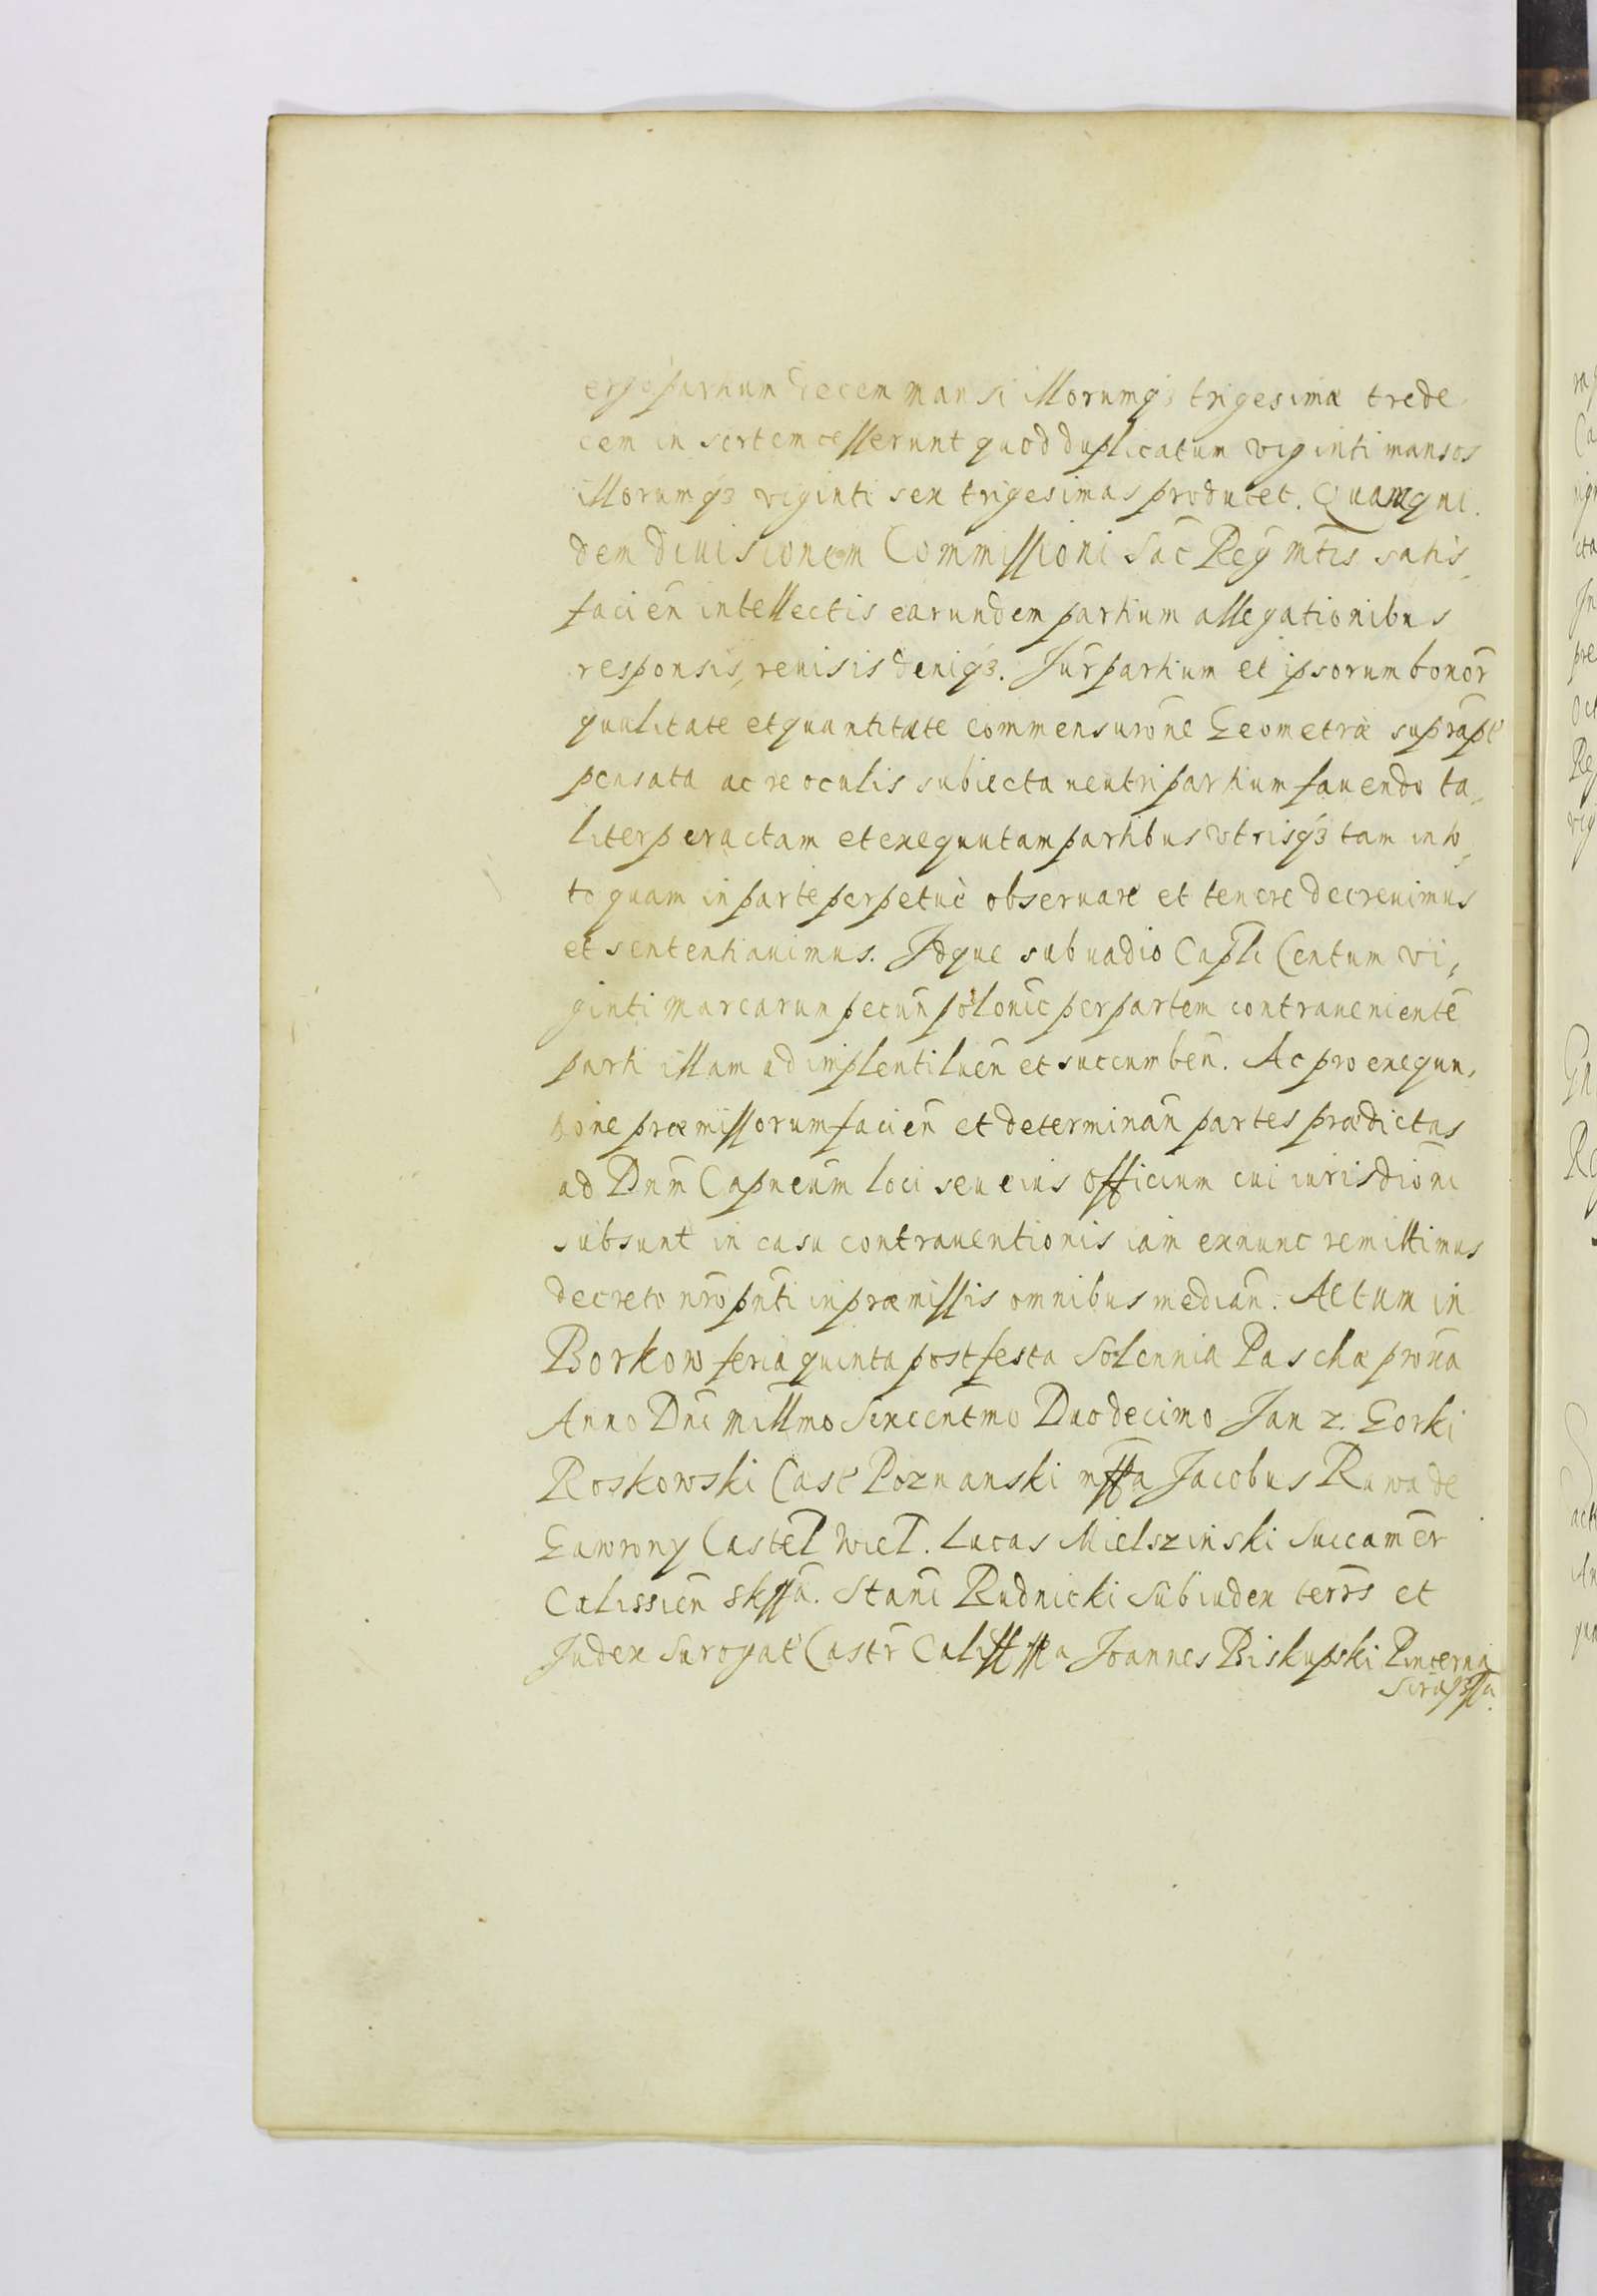 ergo partium decem mansi illorumq3 trigesimæ trede
cem in sortem cesserunt quod duplicatum viginti mansos
illorumq3 viginti sex trigesimas producet. Quamqui
dem divisionem Commissioni Sac̄ Reg̃ mtis satis
facieñ intellectis earundem partium allegationibus
responsis, revisis deniq3. Jur̃ partium et ipsorum bonor̃
qualitate et quantitate commensurõne Geometræ suprapt
pensata ac re oculis subiecta neutri partium favendo ta
liter peractam et exequutam partibus vtrisq3 tam in to
to quam in parte perpetuè observare et tenere decrevimus
et sententiavimus. Idque sub vadio Capłi Centum vi,
ginti marcarum pecuñ polonic̃ per partem contravenientẽ
parti illam adimplenti lueñ et succumbeñ. Ac pro exequu,
tione præmissorum facieñ et determinañ partes prædictas
ad Dnm̃ Capneum̃ loci seu eius officium cui iurisdiõni
subsunt in casu contraventionis iam exnunc remittimus
decreto nr̃o pñti in præmissis omnibus mediañ. Actum in
Borkow feria quinta post festa Solennia Paschæ prox̃a
Anno Dni millmo Sexcentmo Duodecimo Jan z. Gorki
Roskowski Cast Poznanski mssa Jacobus Rawa de
Gawrony Castel̃ Wiel̃. Lucas Mielszinski Succamer̃
Calissień skssã. Stanĩ Rudnicki Subiudex terr̃s et
Judex Surogat Castr̃ Caliss mssa Joannes Biskupski Pincerna
Sirad mssa.